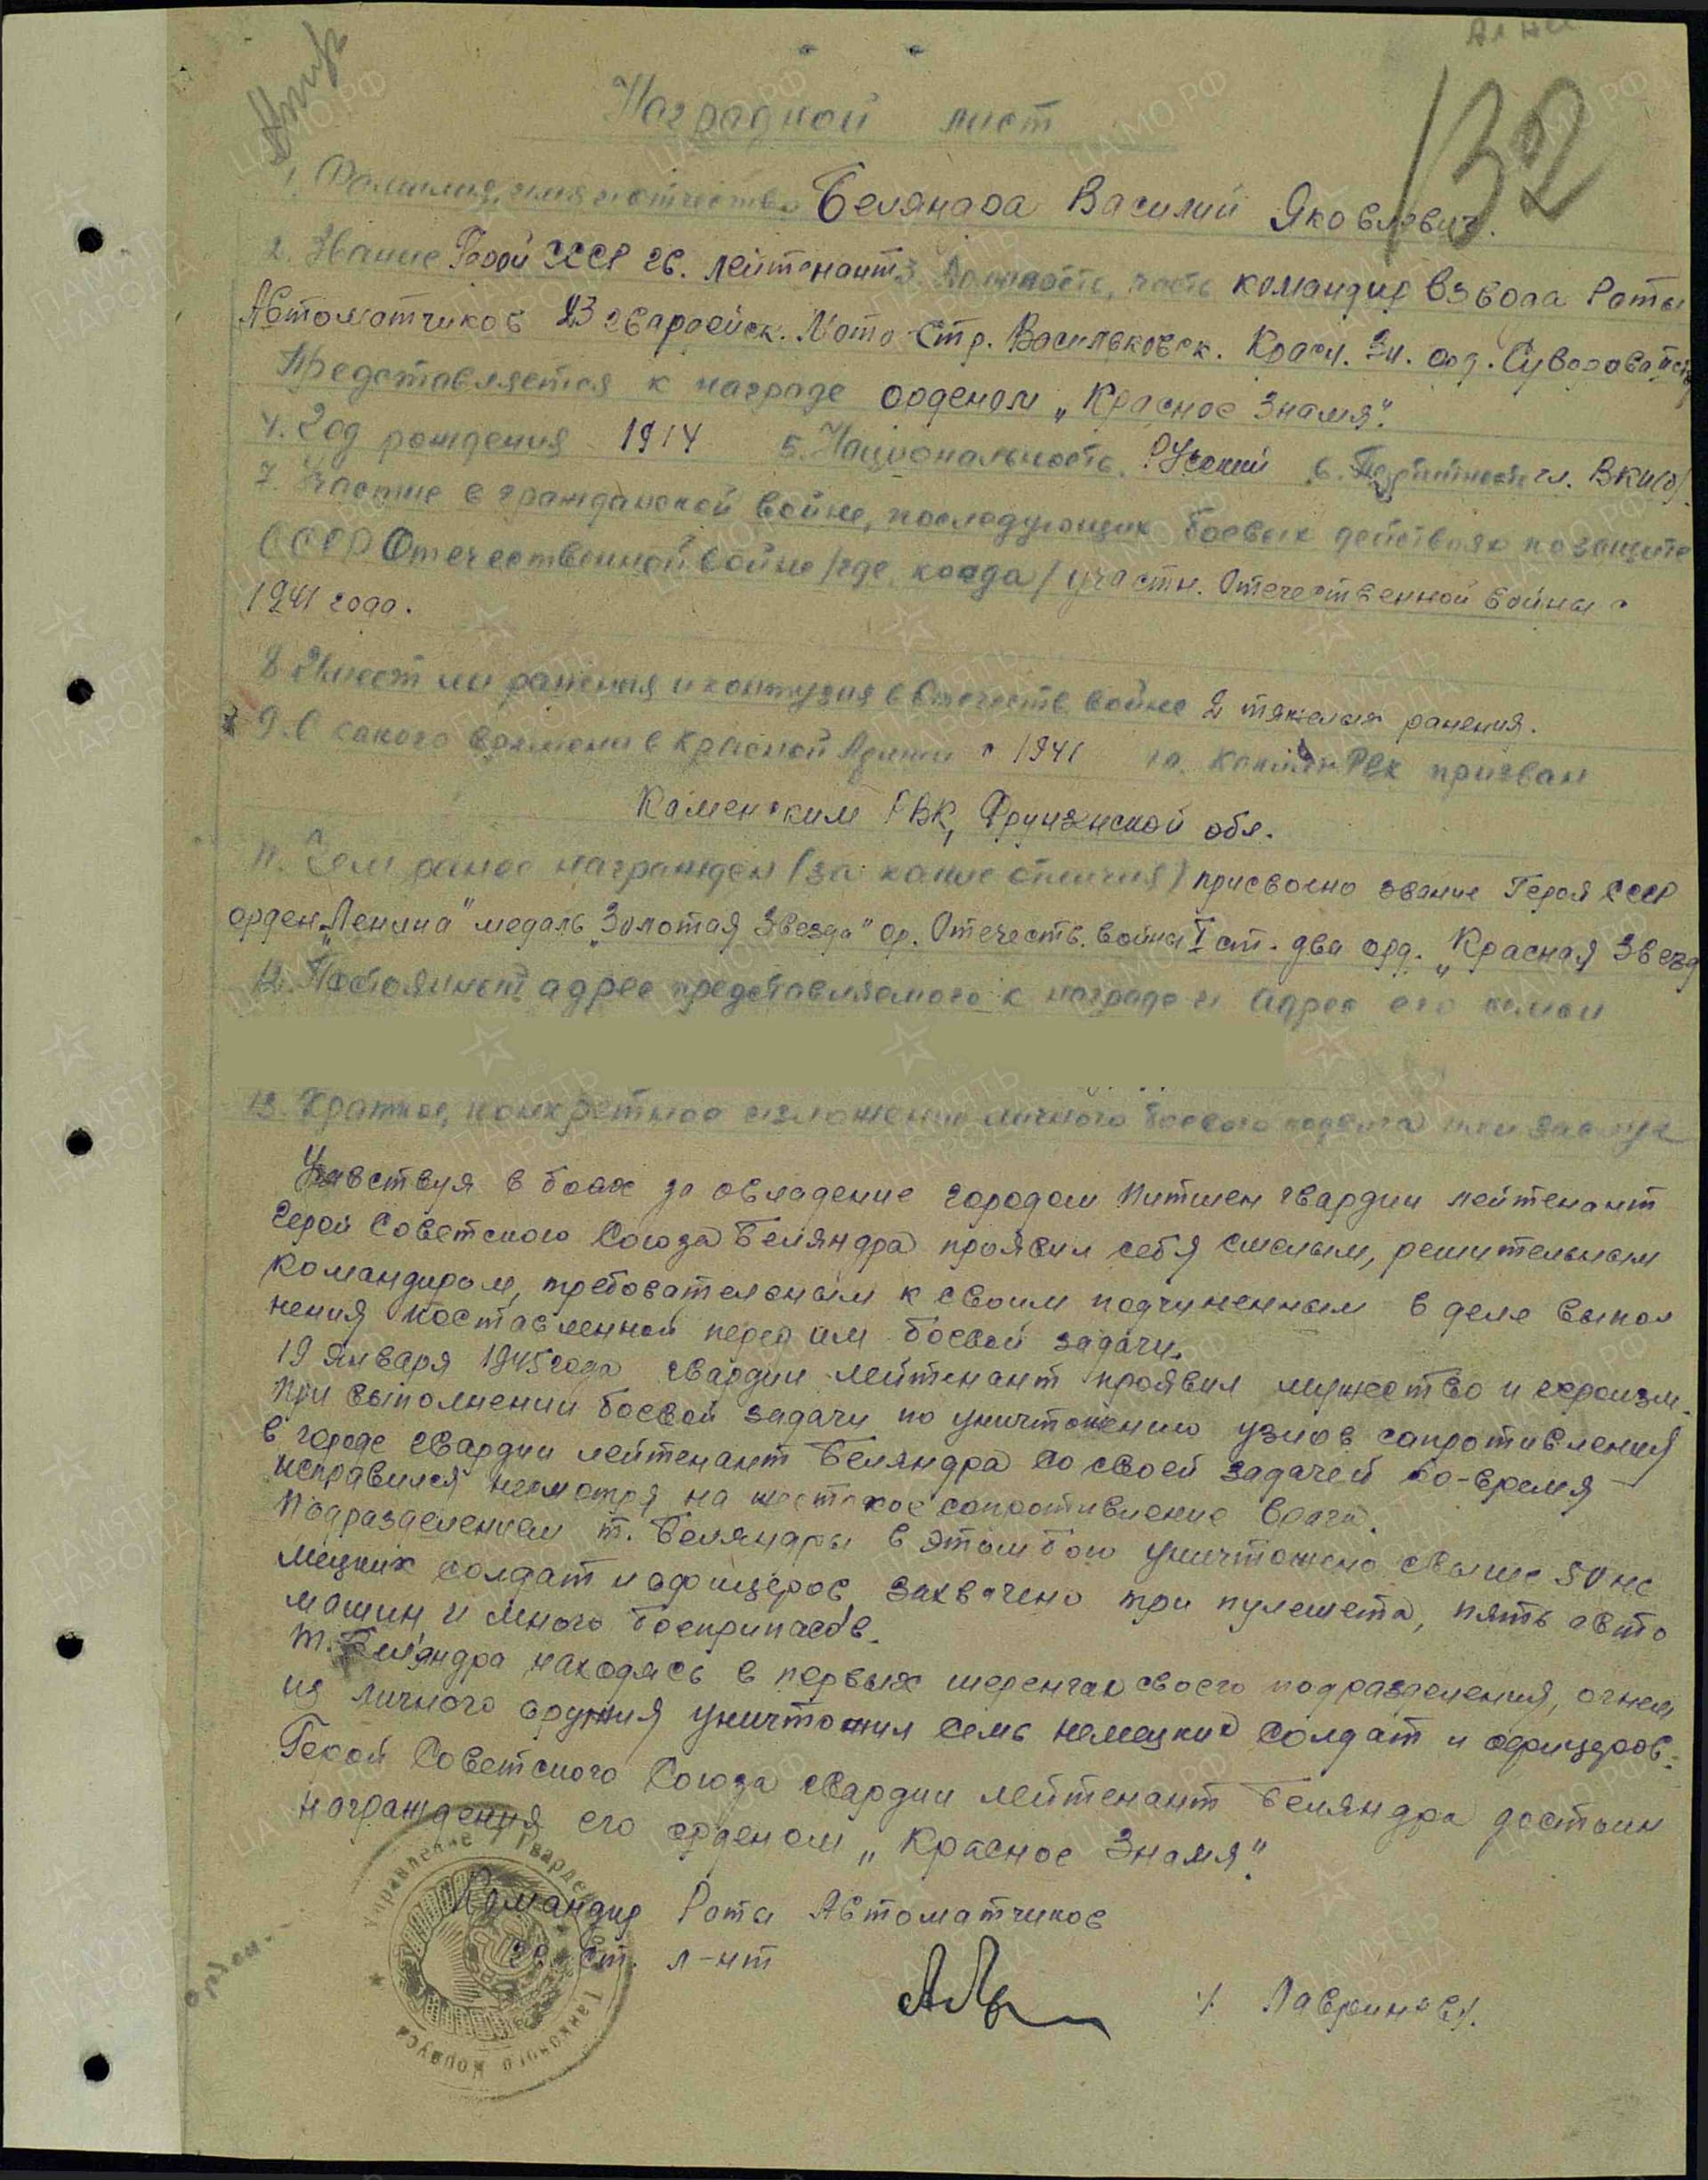 132
Наградной лист
1. Фамилия, имя и отчество Беляндра Василий Яковлевич.
2. Звание Герой СССР гв. лейтенант 3. Должность, часть командир взвода Роты
Автоматчиков 23 гвардейск. Мото Стр. Васильковск. Красн. Зн. орд. Суворова
Представляется к награде орденом „Красное Знамя".
4. Год рождения 1914 5. Национальность. Русский 6. Партийность чл. ВКП(б).
7. Участие в гражданской войне, последующих боевых действиях по защите
СССР Отечественной войне /где, когда/ участн. Отечественной войны с
1941 года.
8. Имеет ли ранения и контузия в Отечеств. войне 2 тяжелых ранения.
9. С какого времени в Красной Армии с 1941 10. Каким РВК призван
Каменским РВК, Фрунзенской обл.
11. Чем ранее награжден (за какие отличия) присвоено звание Героя СССР
орден „Ленина" медаль „Золотая Звезда" ор. Отечеств. война I ст. два орд. „Красная Звезд
12. Постоянный адрес представляемого к награде и адрес его семьи
13. Краткое, конкретное изложение личного боевого подвига или заслуг
Учавствуя в боях за овладение городом Питшен гвардии лейтенант
Герой Советского Союза Беляндра проявил себя смелым, решительным
командиром, требовательным к своим подчиненным в деле выпол
нения поставленной перед им боевой задачи.
19 января 1945 года гвардии лейтенант проявил мужество и героизм.
При выполнении боевой задачи по уничтожению узлов сопротивления
в городе гвардии лейтенант Беляндра со своей задачей во-время
исправился несмотря на жестокое сопротивление врага.
Подразделением т. Беляндры в этом бою уничтожено свыше 50 не
мецких солдат и офицеров, захвачено три пулемета, пять авто
машин и много боеприпасов.
т. Беляндра находясь в первых шеренгах своего подразделения, огнем
из личного оружия уничтожил семь немецких солдат и офицеров.
Герой Советского Союза гвардии лейтенант Беляндра достоин
награждения его орденом „Красное Знамя".
Командир Роты Автоматчиков
гв. ст. л-нт
/. Лавринов/.
Управление 7 Гвардейского Танкового Корпуса
ПАМЯТЬ НАРОДА
ЦАМО.РФ